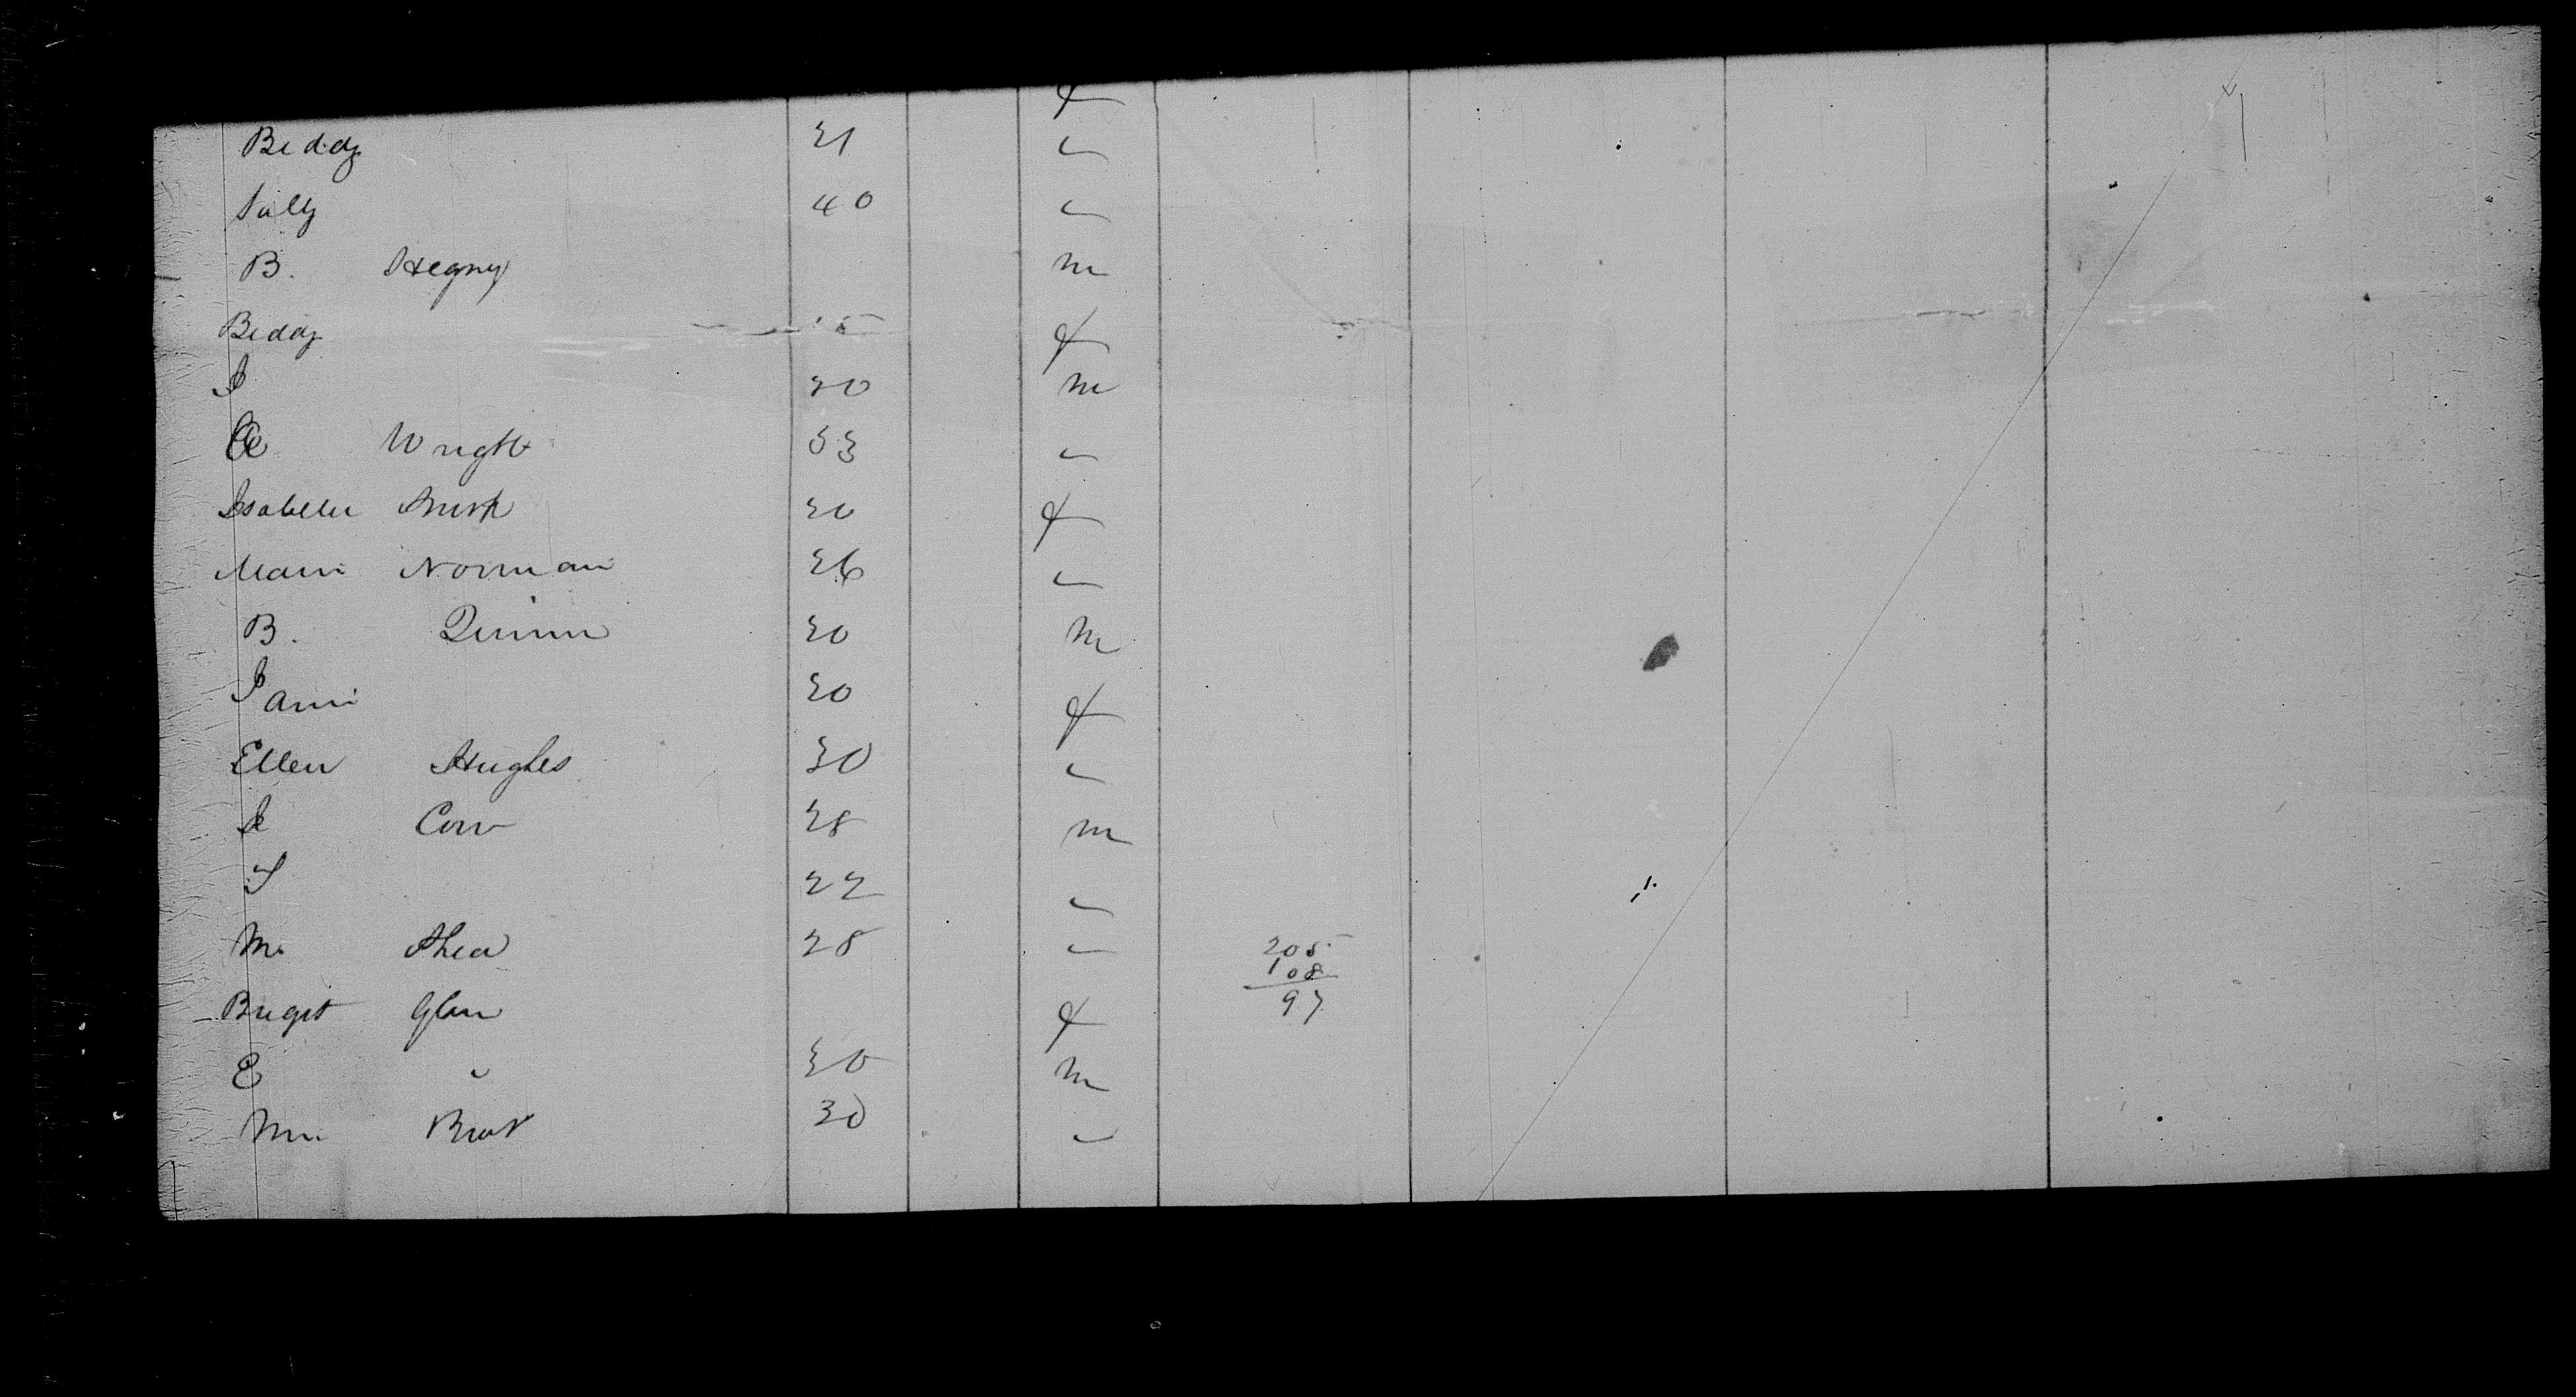 f
Biddy 21 "
Sally 40 "
B. Hegny m
Biddy f
J 20 m
C Wright 33 "
Isabella 20 f
Mari Norman 26 "
B. Quinn 30 m
Jami 30 f
Ellen Hughes 30 "
J Conv 28 m
J 22 "
M. Shea 28 " 205
108
97
Brigit Glan f
E " 30 m
Wm. 30 "